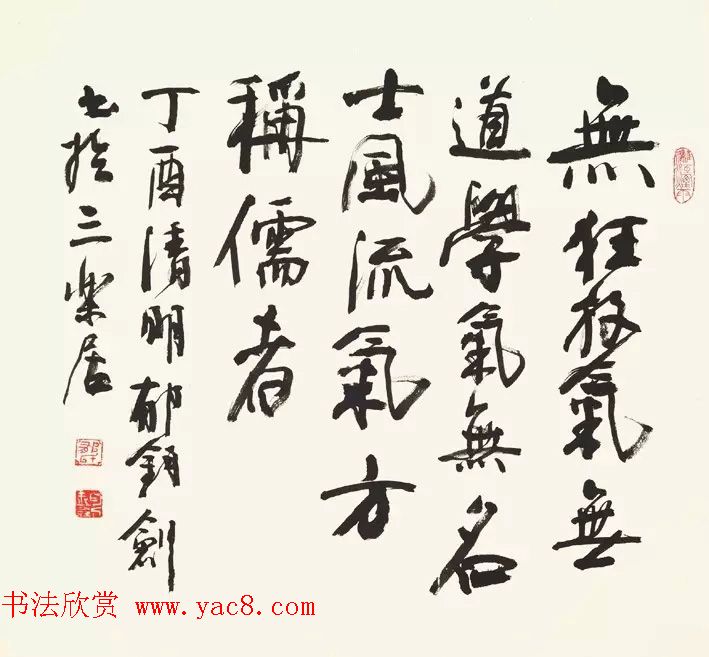 無狂放氣無
道學氣無名
士風流氣方
稱儒者
丁酉清明郁鈞劍
书於三樂居
书法欣赏 www.yac8.com